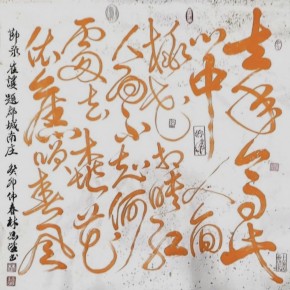 去年今日此
门中人面
桃花相映红
人面不知何
處去桃花
依舊笑春风
录崔護题都城南庄 癸卯仲春